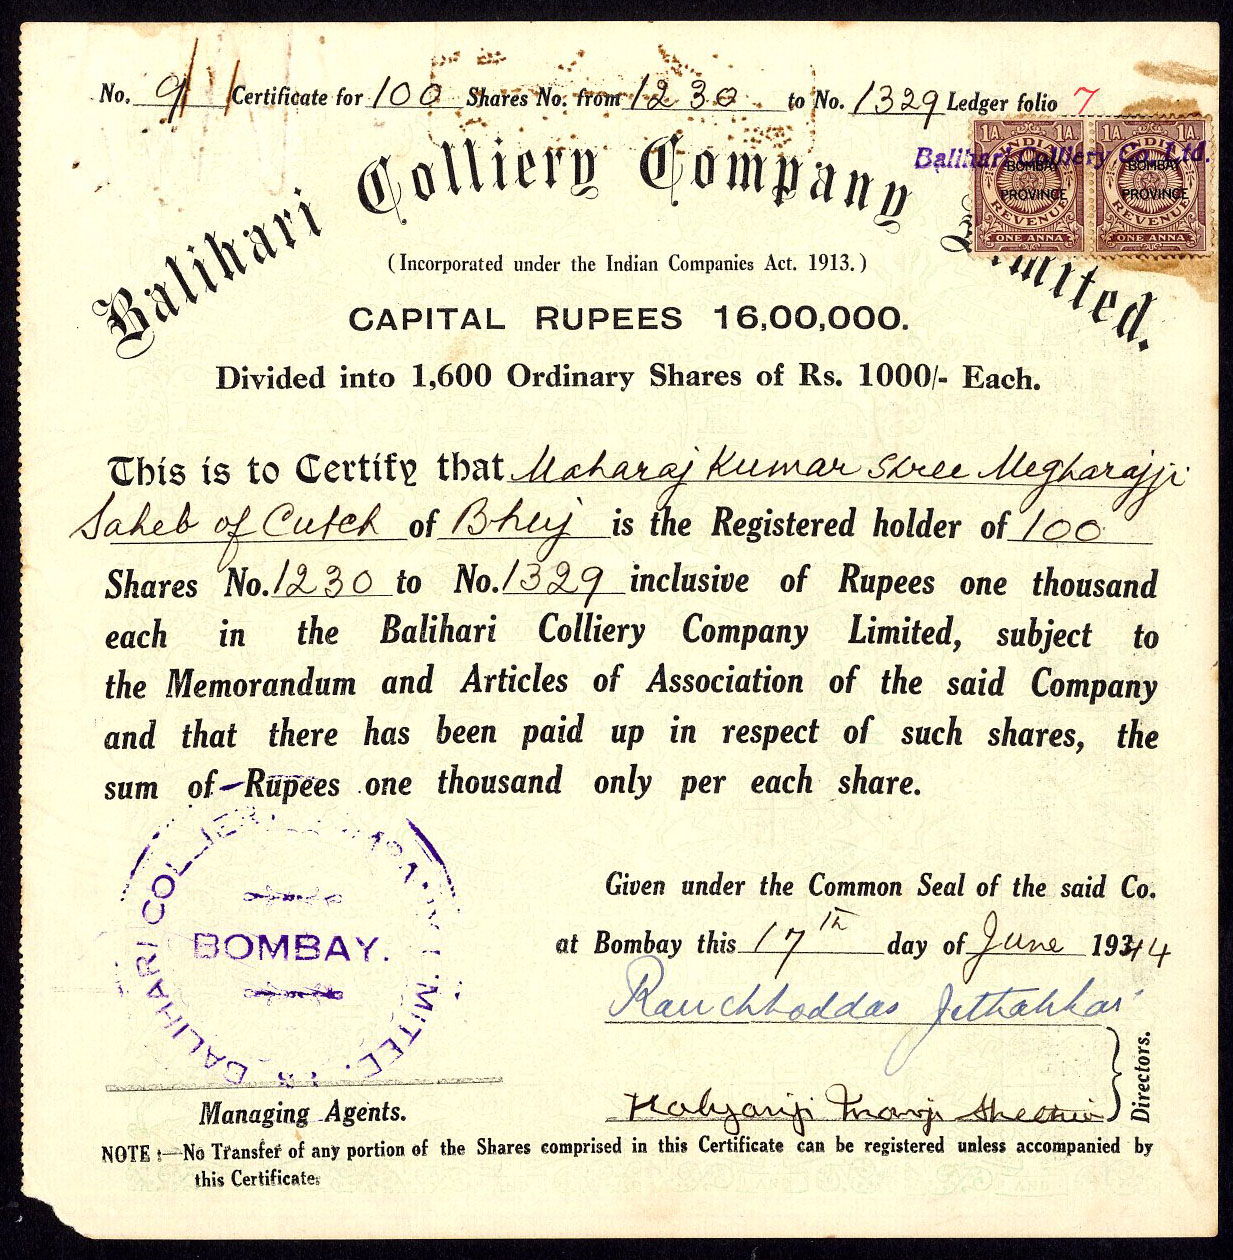 No. 9 Certificate for 100 Shares No. from 1230 to No. 1329 Ledger folio 7
Balihari Colliery Company Limited.
1A 1A 1A 1A
INDIA INDIA
Balihari Colliery Co. Ltd.
BOMBAY BOMBAY
PROVINCE PROVINCE
REVENUE REVENUE
ONE ANNA ONE ANNA
(Incorporated under the Indian Companies Act. 1913.)
CAPITAL RUPEES 16,00,000.
Divided into 1,600 Ordinary Shares of Rs. 1000/- Each.
This is to Certify that Maharaj Kumar Shree Megharajji
Saheb of Cutch of Bhuj is the Registered holder of 100
Shares No. 1230 to No. 1329 inclusive of Rupees one thousand
each in the Balihari Colliery Company Limited, subject to
the Memorandum and Articles of Association of the said Company
and that there has been paid up in respect of such shares, the
sum of Rupees one thousand only per each share.
BALIHARI COLLIERY COMPANY LIMITED.
BOMBAY.
Given under the Common Seal of the said Co.
at Bombay this 17th day of June 19344
Directors.
Managing Agents.
NOTE :—No Transfer of any portion of the Shares comprised in this Certificate can be registered unless accompanied by
this Certificate.